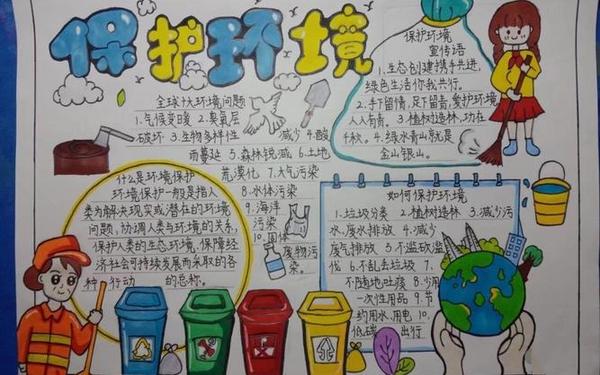 保护环境
全球十大环境问题
1.气候变暖 2.臭氧层
破坏 3.生物多样性 减少 4.酸
雨蔓延 5.森林锐减 6.土地
荒漠化 7.大气污染
8.水体污染
9.海洋
污染
10.固体
废物污
染。
保护环境
宣传语
1.生态创建携手共进,
绿色生活你我共行。
2.手下留情,足下留青,爱护环境,
人人有责。3.植树造林,功在
千秋。4.绿水青山就是
金山银山。
什么是环境保护
环境保护一般是指人
类为解决现实或潜在的环境
问题,协调人类与环境的关系,
保护人类的生态环境、保障经
济社会可持续发展而采取的各
种 行动 的总称。
如何保护环境
1.垃圾分类 2.植树造林 3.减少污
水、废水排放 4.减少
废气排放 5.不滥砍滥
伐 6.不乱丢垃圾 7.
不随地吐痰 8.少用
一次性用品 9.节
约用水、用电 10.
低碳 出行